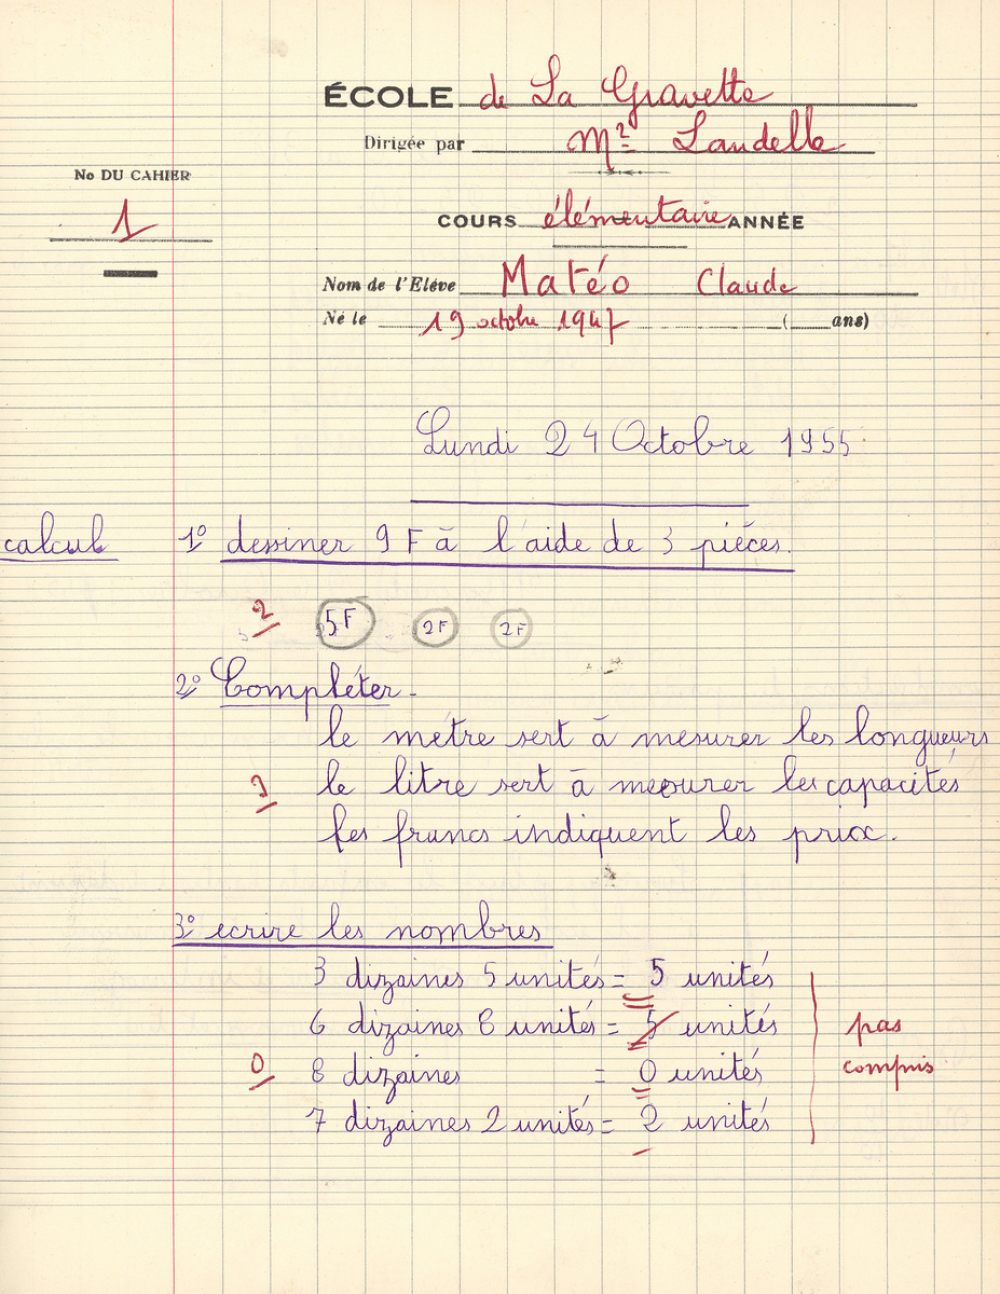 ÉCOLE de La Gravette
Dirigée par Mme Landelle
No DU CAHIER
1
COURS élémentaire ANNÉE
Nom de l'Elève Matéo Claude
Né le 19 octobre 1947 ( ans)
Lundi 24 Octobre 1955
calcul 1º dessiner 9 F à l'aide de 3 pièces.
2 5F 2F 2F
2º Compléter.
le mètre sert à mesurer les longueurs
le litre sert à mesurer les capacités
les francs indiquent les prix.
3º ecrire les nombres
3 dizaines 5 unités = 5 unités
6 dizaines 8 unités = 5 unités pas
0 8 dizaines = 0 unités compris
7 dizaines 2 unités = 2 unités